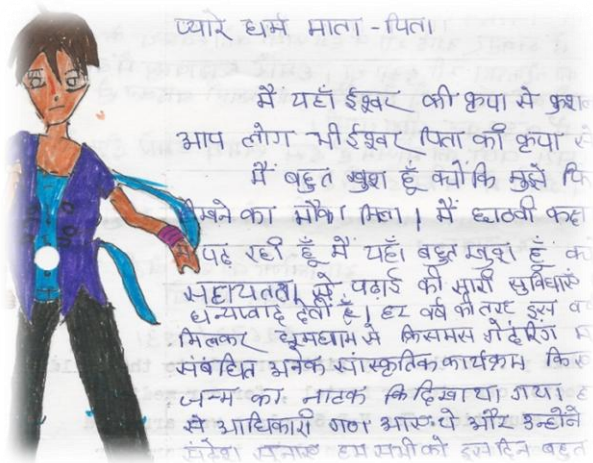 प्यारे धर्म माता - पिता
मैं यहाँ ईश्वर की कृपा से
आप लोग भी ईश्वर पिता की कृपा से
मैं बहुत खुश हूँ क्योंकि मुझे
का मौका मिला। मैं
पढ़ रही हूँ मैं यहाँ बहुत खुश हूँ
पढ़ाई की सारी
देती हूँ। हर वर्ष की तरह इस
मिलकर धुमधाम से किसमस गेदरिंग
संबंधित अनेक सांस्कृतिक कार्यक्रम
जन्म का नाटक दिखाया गया।
से आधिकारी गण आए थे और उन्होंने
हम सभी को इस दिन बहुत